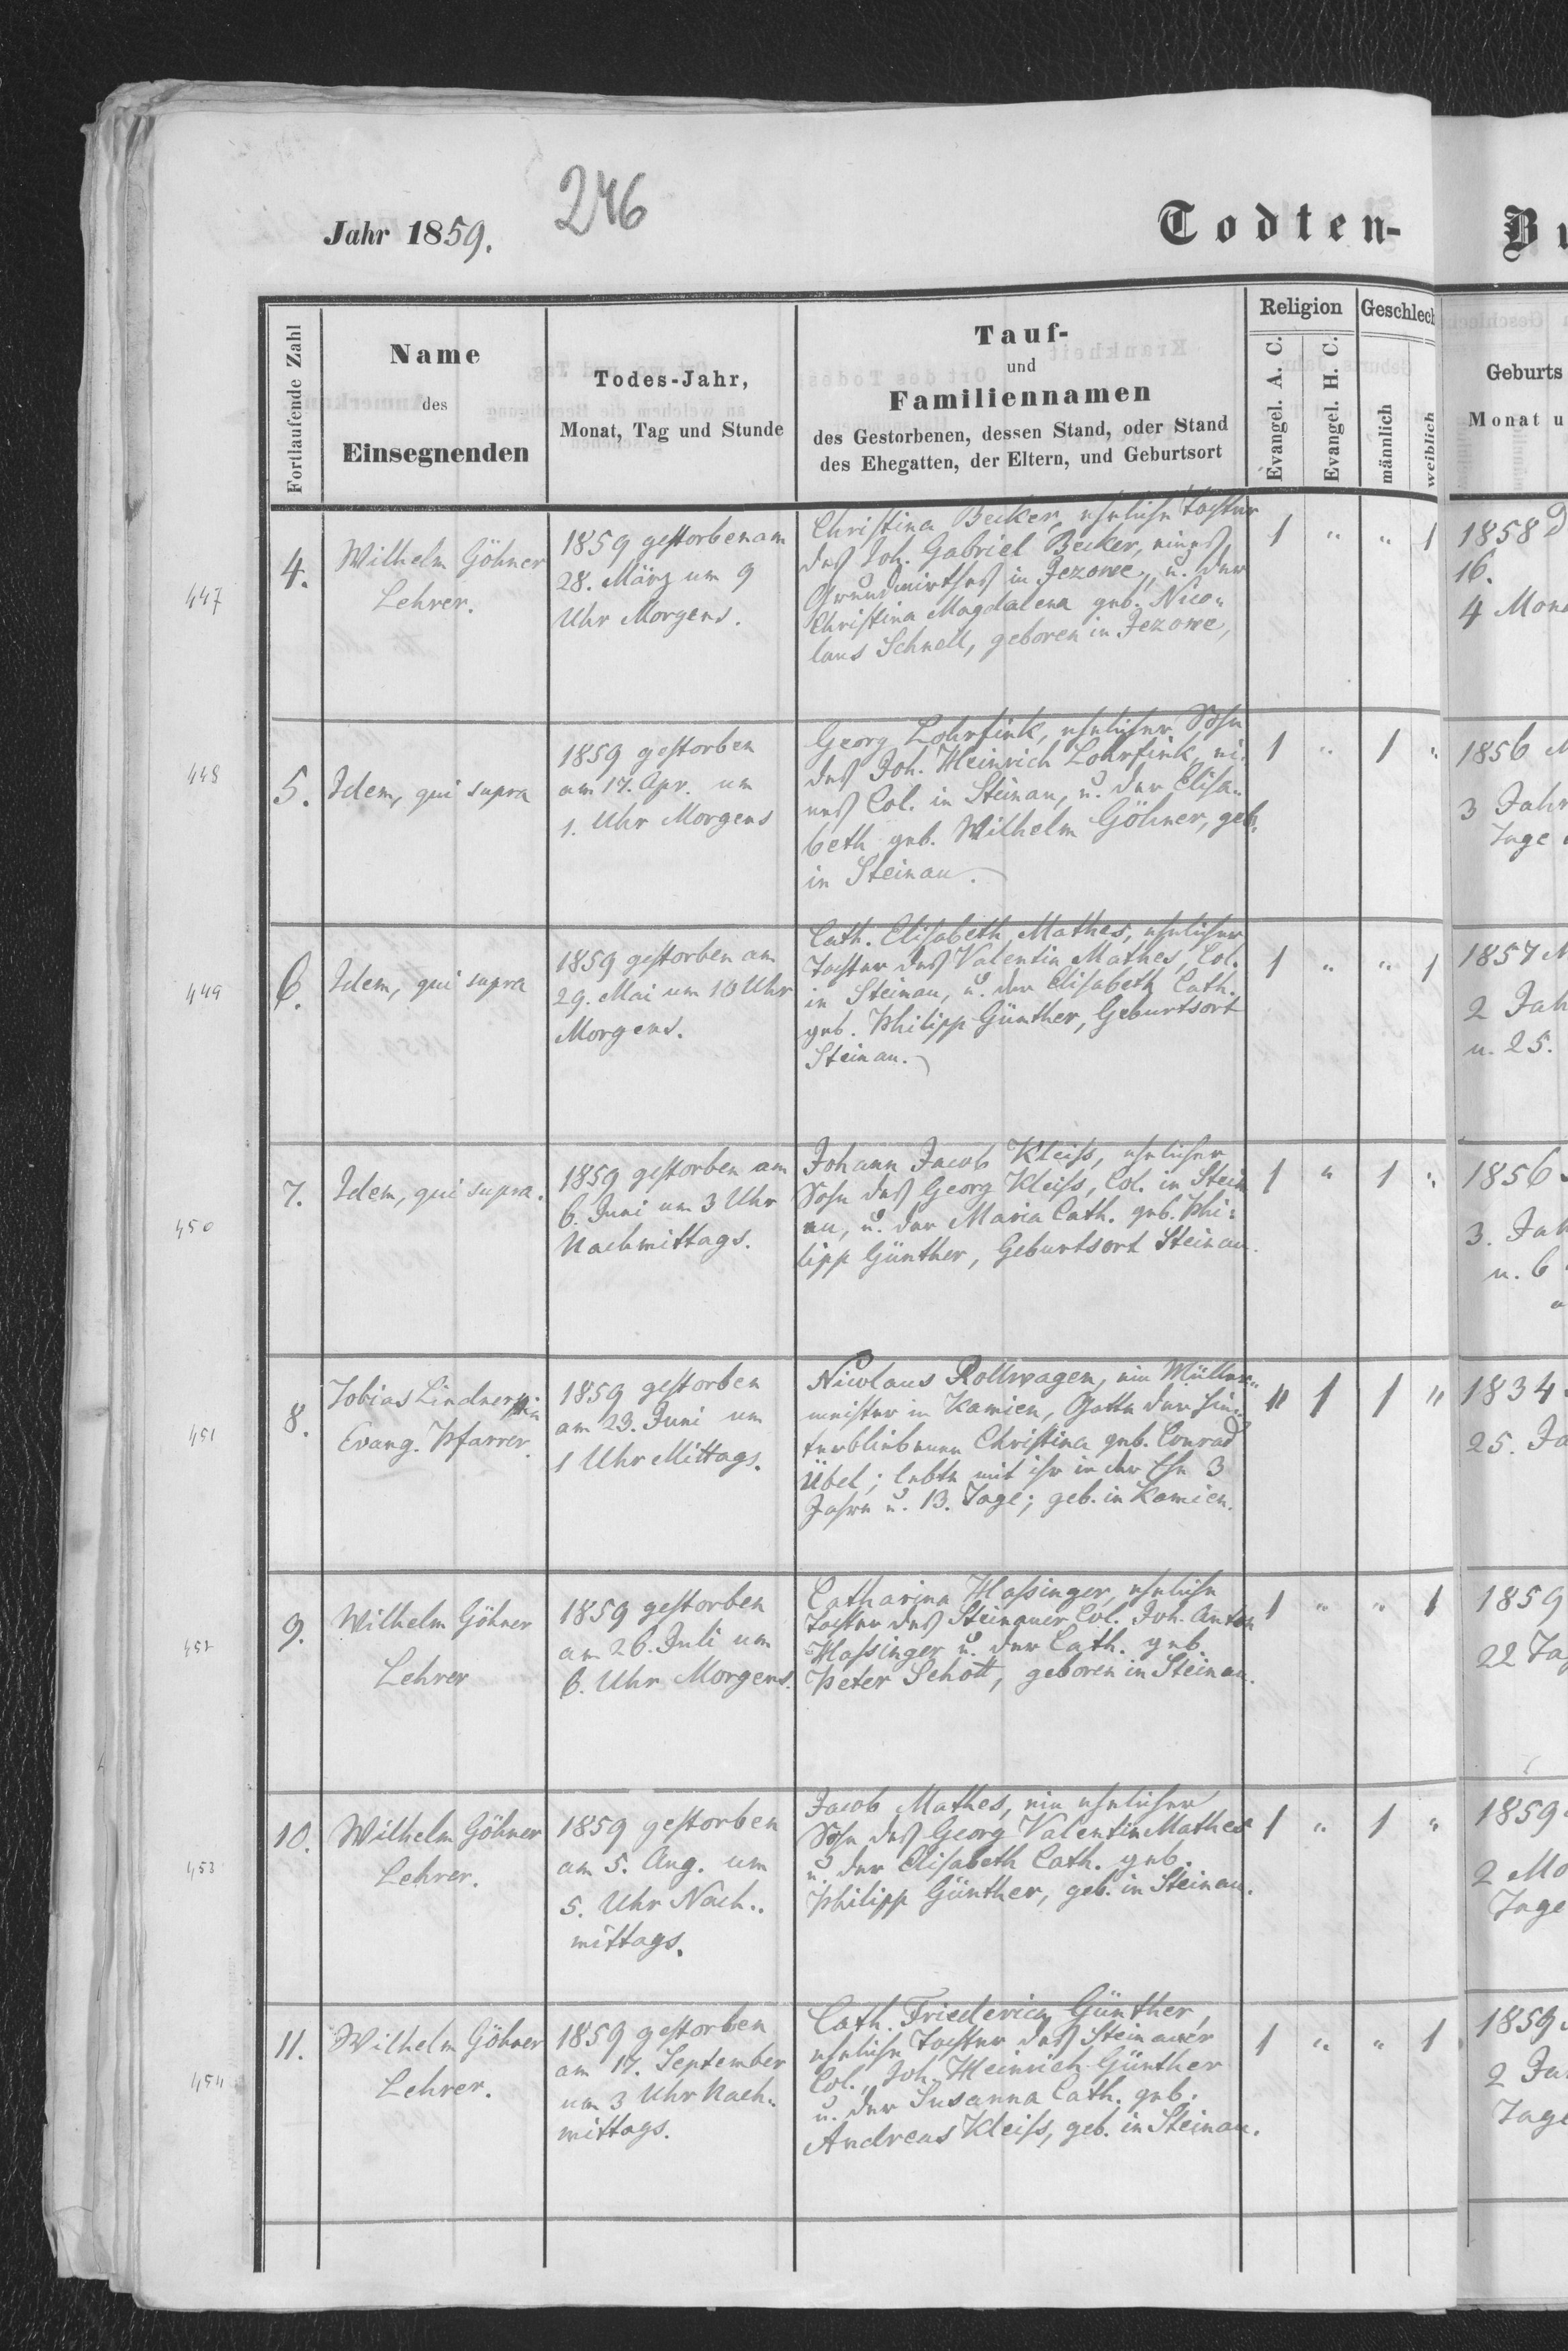 246
Jahr 1859.
Todten-
Bu
Fortlaufende Zahl
Name
des
Einsegnenden
Todes-Jahr,
Monat, Tag und Stunde
Tauf-
und
Familiennamen
des Gestorbenen, dessen Stand, oder Stand
des Ehegatten, der Eltern, und Geburtsort
Religion
Evangel. A. C.
Evangel. H. C.
Geschlech
männlich
weiblich
Geburts
Monat u
447
4.
Wilhelm Göhner
Lehrer.
1859 gestorben am
28. März um 9
Uhr Morgens.
Christina Becker, eheliche Tochter
des Joh. Gabriel Becker, eines
Grundwirthes in Jezowe, u. der
Christina Magdalena geb. Nico„
laus Schnell, geboren in Jezowe,
1 " " 1
1858 D
16.
4 Mon
448
5.
Idem, qui supra
1859 gestorben
am 17. Apr. um
1. Uhr Morgens
Georg Lohrfink, ehelicher Sohn
des Joh. Heinrich Lohrfink, ei„
nes Col. in Steinau, u. der Elisa„
beth geb. Wilhelm Göhner, geb.
in Steinau.
1 " 1 "
1856 M
3 Jahr
Tage
449
6.
Idem, qui supra
1859 gestorben am
29. Mai um 10 Uhr
Morgens.
Cath. Elisabeth Mathes, ehelicher
Tochter des Valentin Mathes, Col.
in Steinau, u. der Elisabeth Cath.
geb. Philipp Günther, Geburtsort
Steinau.
1 " " 1
1857 M
2 Jah
u. 25.
450
7.
Idem, qui supra.
1859 gestorben am
6. Juni um 3 Uhr
Nachmittags.
Johann Jacob Kleiss, ehelicher
Sohn des Georg Kleiss, Col. in Stein
au, u. der Maria Cath. geb. Phi=
lipp Günther, Geburtsort Steinau.
1 " 1 "
1856
3. Jah
u. 6
451
8.
Tobias Lindner
Evang. Pfarrer.
1859 gestorben
am 23. Juni um
1 Uhr Mittags.
Nicolaus Rollwagen, ein Müller„
meister in Kamien, Gatte der hin„
terbliebenen Christina geb. Conrad
Übel; lebte mit ihr in der Ehe 3
Jahre u. 13. Tage; geb. in Kamien.
" 1 1 "
1834
25. Ja
452
9.
Wilhelm Göhner
Lehrer
1859 gestorben
am 26. Juli um
6. Uhr Morgens.
Catharina Hassinger, eheliche
Tochter des Steinauer Col. Joh. Anton
Hassinger u. der Cath. geb.
Peter Schott, geboren in Steinau.
1 " " 1
1859
22 Ta
453
10.
Wilhelm Göhner
Lehrer.
1859 gestorben
am 5. Aug. um
5. Uhr Nach„
mittags.
Jacob Mathes, ein ehelicher
Sohn des Georg Valentin Mathes
u. der Elisabeth Cath. geb.
Philipp Günther, geb. in Steinau.
1 " 1 "
1859
2 Mo
Tage
454
11.
Wilhelm Göhner
Lehrer.
1859 gestorben
am 17. September
um 3 Uhr Nach„
mittags.
Cath. Friederica Günther,
eheliche Tochter des Steinauer
Col., Joh. Heinrich Günther
u. der Susanna Cath. geb.
Andreas Kleiss, geb. in Steinau.
1 " " 1
1859
2 Ja
Tage